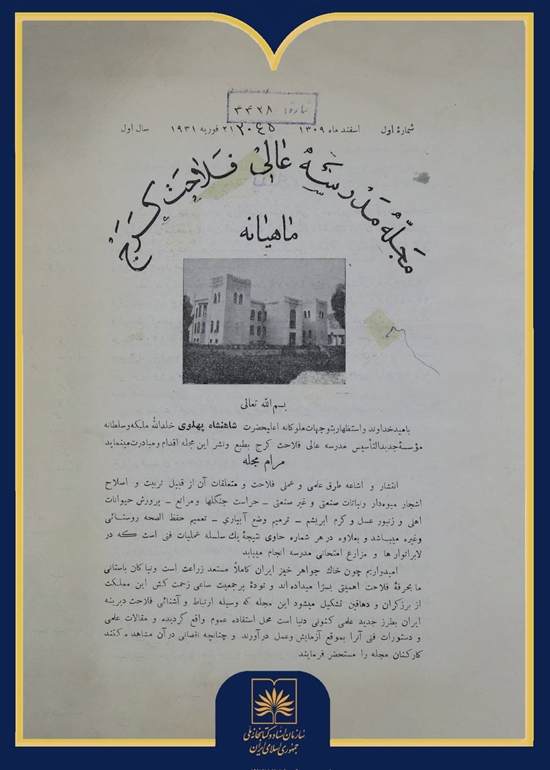 شماره: ۳۴۳۸
شمارهٔ اول
اسفند ماه ۱۳۰۹
۲۰۴۵
۲۱ فوریه ۱۹۳۱
سال اول
مجلّه مَدرسَه عالی فلاحَت کرَج
ماهیانه
بسم الله تعالی
بامیدخداوند واستظهاربتوجهات ملوکانه اعلیحضرت شاهنشاه پهلوی خلدالله ملکه وسلطانه
مؤسسهٔ جدیدالتأسیس مدرسه عالی فلاحت کرج بطبع ونشر این مجله اقدام ومبادرت مینماید
مرام مجله
انتشار و اشاعه طرق علمی و عملی فلاحت و متعلقات آن از قبیل تربیت و اصلاح
اشجار میوه‌دار ونباتات صنعتی و غیر صنعتی ـ حراست جنگلها ومراتع ـ پرورش حیوانات
اهلی و زنبور عسل و کرم ابریشم ـ ترمیم وضع آبیاری ـ تعمیم حفظ الصحه روستائی
وغیره میباشد و بعلاوه در هر شماره حاوی نتیجهٔ یك سلسله عملیات فنی است که در
لابراتوار ها و مزارع امتحانی مدرسه انجام مییابد
امیدواریم چون خاك جواهر خیز ایران کاملاً مستعد زراعت است ونیاکان باستانی
ما بحرفهٔ فلاحت اهمیتی بسزا میداده‌اند و تودهٔ پرجمعیت ساعی زحمت کش این مملکت
از برزگران و دهاقین تشکیل میشود این مجله که وسیله ارتباط و آشنائی فلاحت دیرینه
ایران بطرز جدید علمی کنونی دنیا است محل استفاده عموم واقع گردیده و مقالات علمی
و دستورات فنی آنرا بموقع آزمایش وعمل درآورند و چنانچه نقصانی درآن مشاهده کنند
کارکنان مجله را مستحضر فرمایند
سازمان اسناد و کتابخانه ملی
جمهوری اسلامی ایران